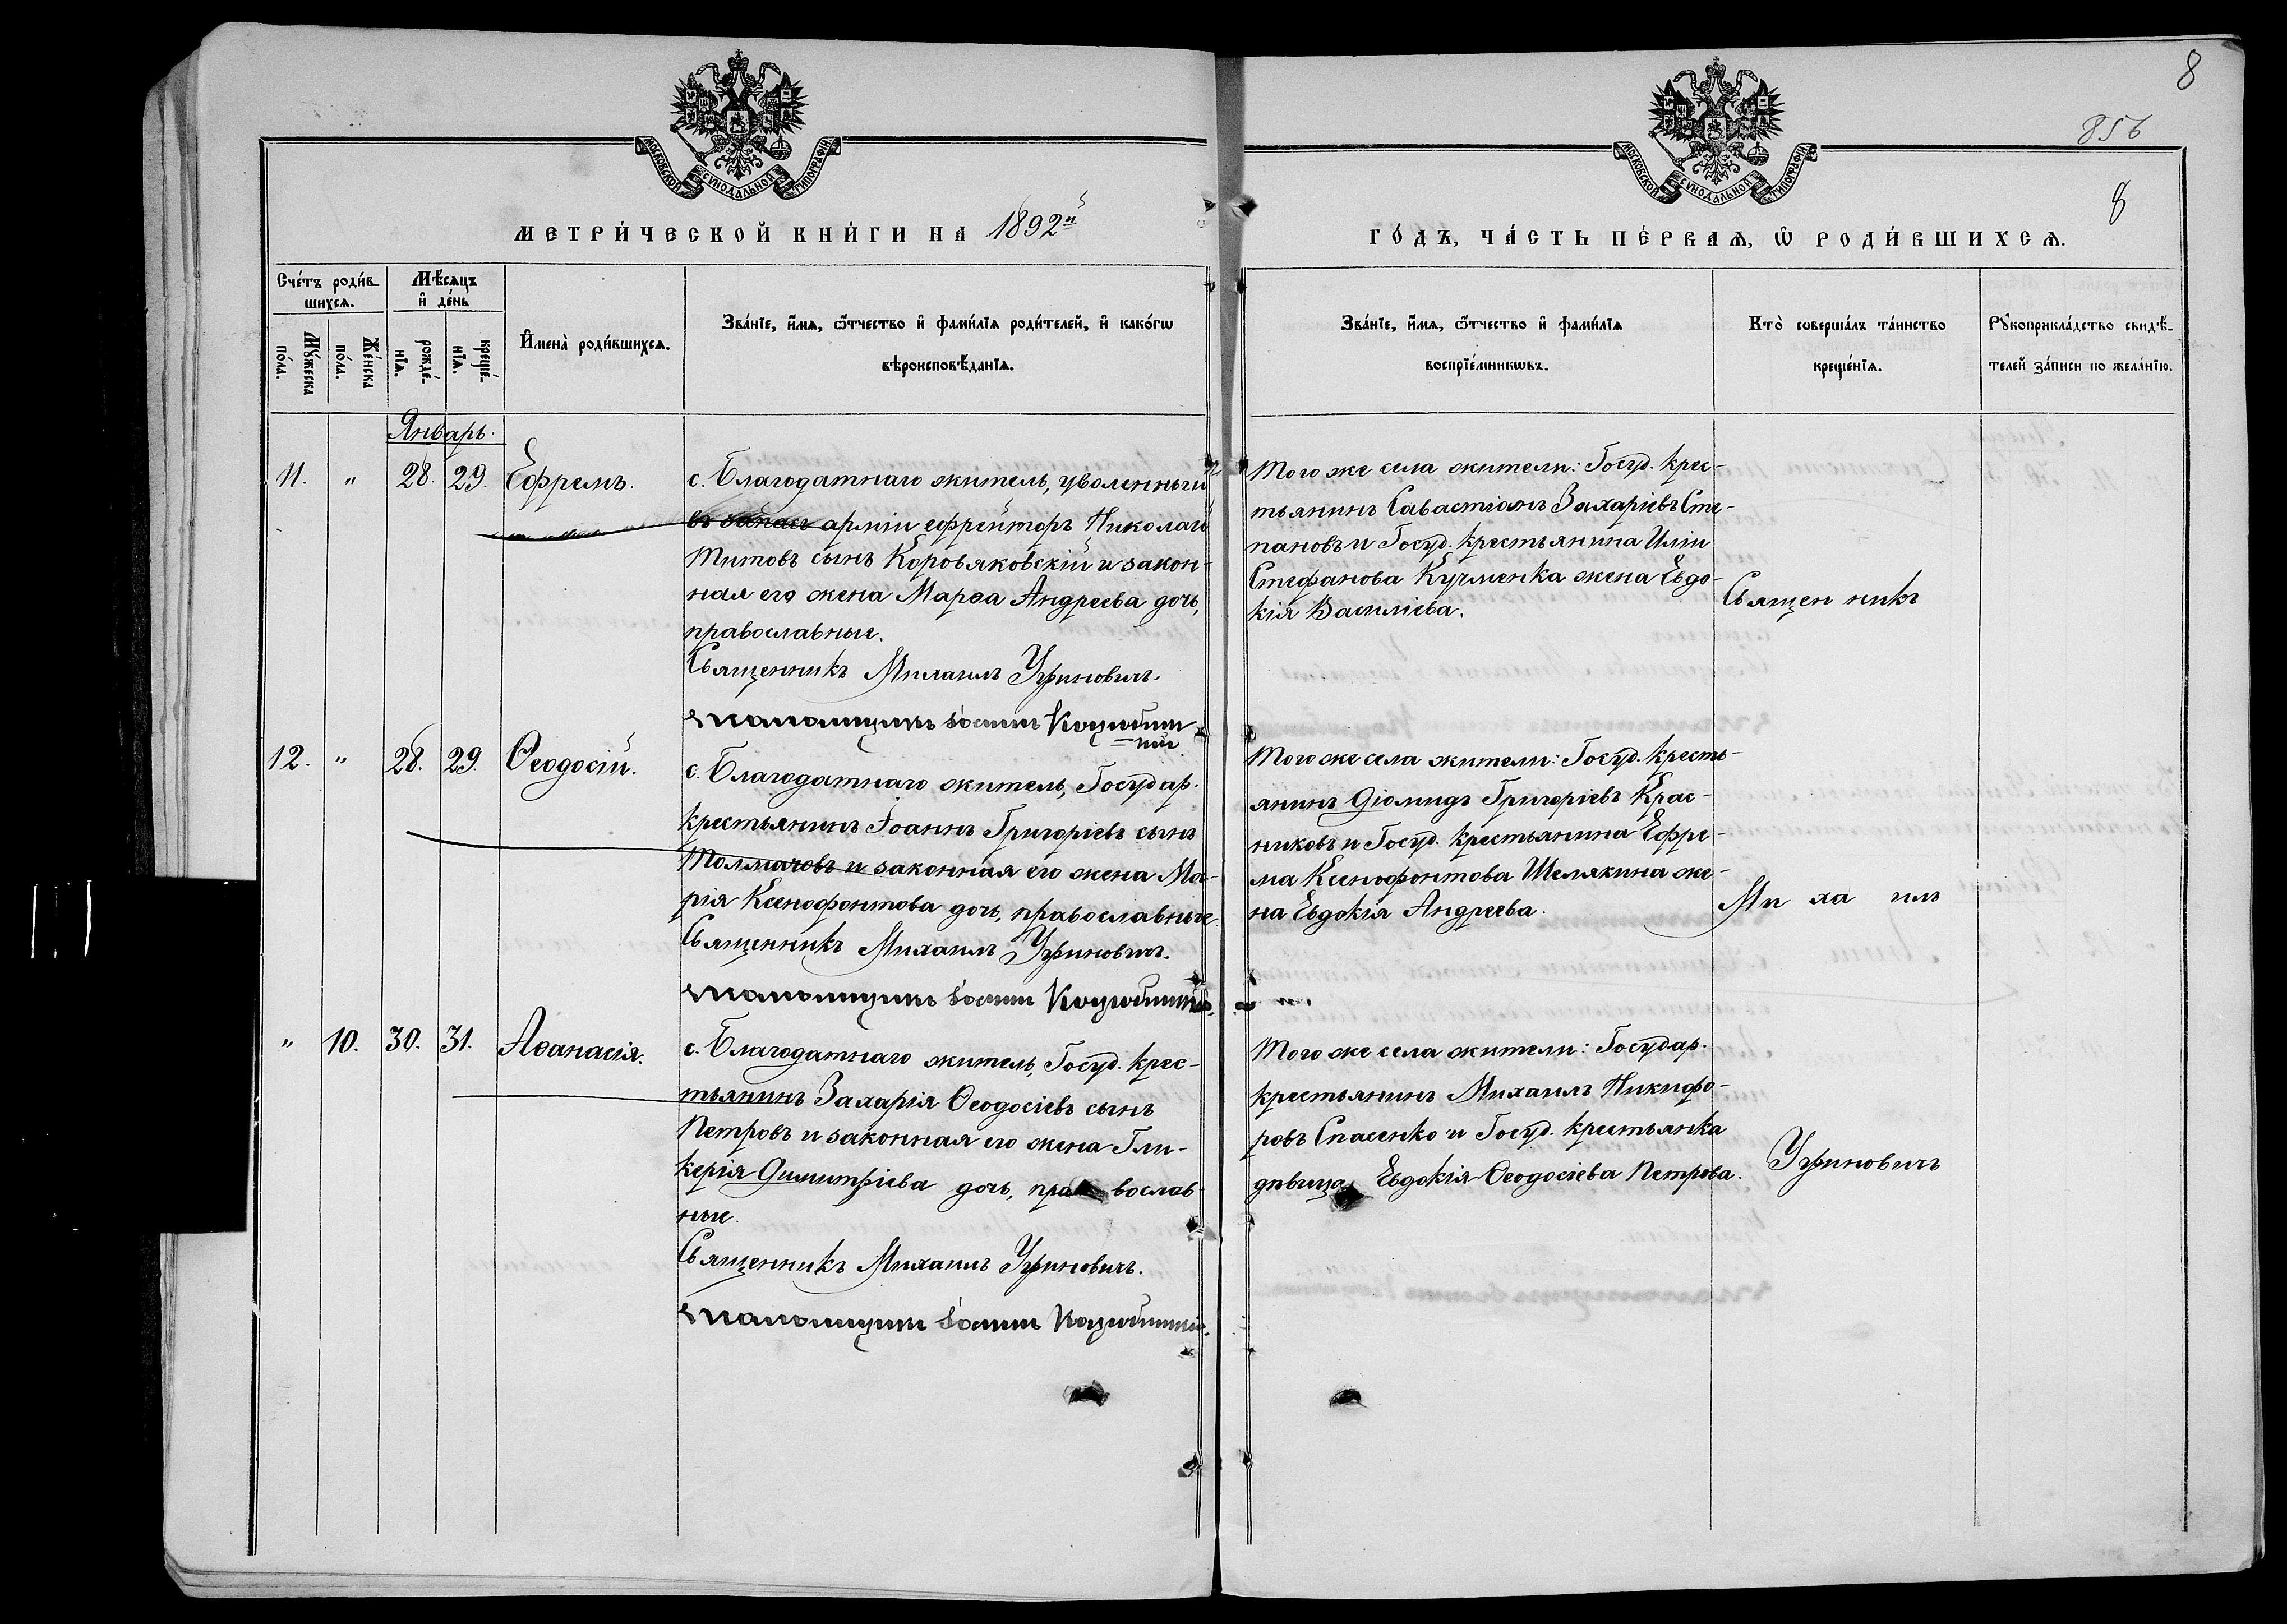 8
856
8
МОСКОВСКОЙ СѴНОДАЛЬНОЙ ТИПОГРАФІИ
МОСКОВСКОЙ СѴНОДАЛЬНОЙ ТИПОГРАФІИ
МЕТРИ́ЧЕСКОЙ КНИ́ГИ НА 1892й
ГО́ДЪ, ЧА́СТЬ ПЕ́РВАѦ, Ѡ РОДИ́ВШИХСѦ.
Сче́тъ роди́в-
шихсѧ.
Мѣ́сѧцъ
и҆ де́нь
Мꙋ́жеска
по́ла.
Же́нска
по́ла.
рожде́-
нїѧ.
креще́-
нїѧ.
И҆мена̀ роди́вшихсѧ.
Зва́нїе, и҆́мѧ, ѻ҆́тчество и҆ фами́лїѧ роди́телей, и҆ како́гѡ
вѣроисповѣ́данїѧ.
Зва́нїе, и҆́мѧ, ѻ҆́тчество и҆ фами́лїѧ
воспрїе́мникѡвъ.
Кто̀ соверша́лъ та́инство
креще́нїѧ.
Рꙋкоприкла́дство свидѣ́-
телей за́писи по жела́нїю.
Январь.
11. " 28. 29. Ефремъ.
с. Благодатнаго житель, уволенный
въ запасъ арміи ефрейторъ Николай
Титовъ сынъ Коровяковскій и закон-
ная его жена Марѳа Андреева дочь,
православные.
Священникъ Михаилъ Угриновичъ.
Псаломщикъ
Того же села жители: Госуд. крес-
тьянинъ Савастіанъ Захаріевъ Сте-
пановъ и Госуд. крестьянина Иліи
Стефанова Кучменка жена Евдо-
кія Василіева.
Священникъ
12. " 28. 29. Ѳеодосій.
с. Благодатнаго житель, Государ.
крестьянинъ Іоаннъ Григоріевъ сынъ
Толмачовъ и законная его жена Ма-
рія Ксенофонтова дочь, православные
Священникъ Михаилъ Угриновичъ.
Псаломщикъ
Того же села жители: Госуд. кресть-
янинъ Діомидъ Григоріевъ Крас-
никовъ и Госуд. крестьянина Ефре-
ма Ксенофонтова Шелякина же-
на Евдокія Андреева.
Михаилъ
" 10. 30. 31. Аѳанасія.
с. Благодатнаго житель, Госуд. крес-
тьянинъ Захарія Ѳеодосіевъ сынъ
Петровъ и законная его жена Гли-
керія Димитріева дочь, православ-
ные.
Священникъ Михаилъ Угриновичъ.
Псаломщикъ
Того же села жители: Государ.
крестьянинъ Михаилъ Никифо-
ровъ Спасенко и Госуд. крестьянка
дѣвица Евдокія Ѳеодосіева Петрова.
Угриновичъ